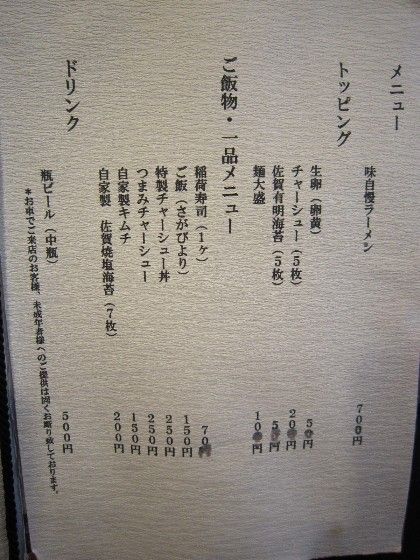 メニュー
味自慢ラーメン 700円
トッピング
生卵（卵黄） 50円
チャーシュー（5枚） 200円
佐賀有明海苔（5枚） 50円
麺大盛 100円
ご飯物・一品メニュー
稲荷寿司（1ヶ） 70円
ご飯（さがびより） 150円
特製チャーシュー丼 250円
つまみチャーシュー 250円
自家製キムチ 150円
自家製 佐賀焼塩海苔（7枚） 200円
ドリンク
瓶ビール（中瓶） 500円
＊お車でご来店のお客様、未成年者様へのご提供は固くお断り致しております。